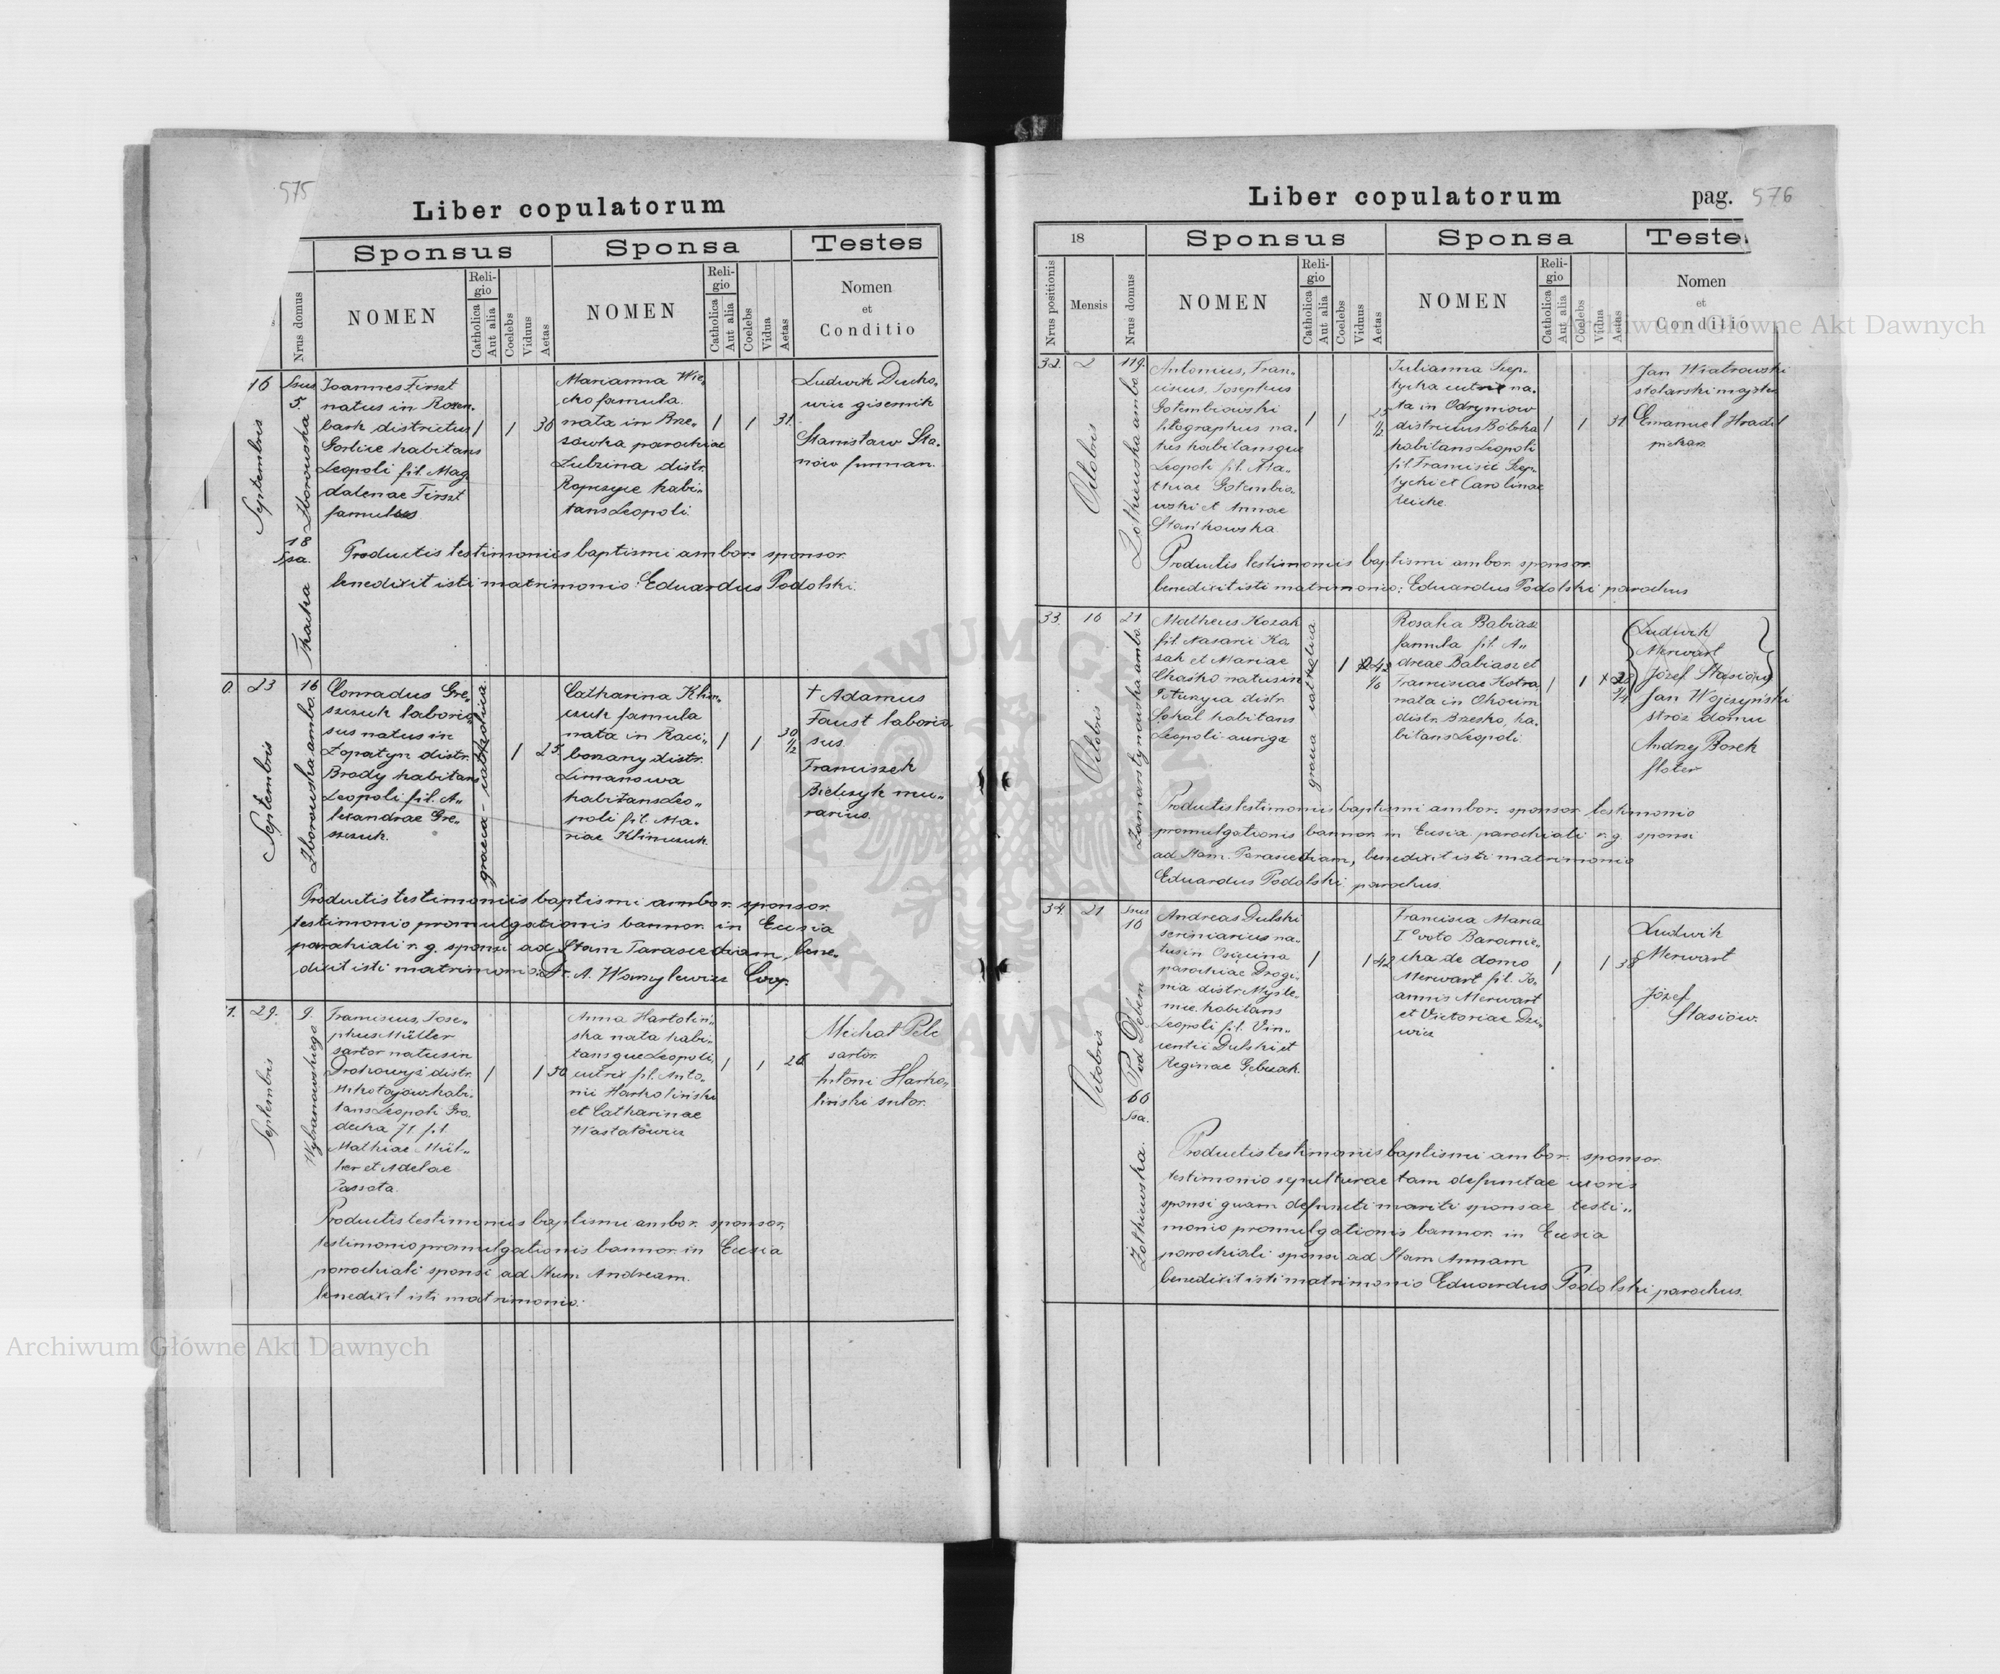 575
Liber copulatorum
Sponsus
Sponsa
Testes
Nrus domus
NOMEN
Religio
Catholica
Aut alia
Coelebs
Viduus
Aetas
NOMEN
Religio
Catholica
Aut alia
Coelebs
Vidua
Aetas
Nomen
et
Conditio
16
Septembris
Ssus
5.
18
Ssa.
Joannes Firszt
natus in Rozen-
bark districtus
Gorlice habitans
Leopoli fil. Mag-
dalenae Firszt
famulus
1
1
30
Marianna Wie-
cho famula
nata in Brze-
zowka parochiae
Lubzina distr.
Ropczyce habi-
tans Leopoli.
1
1
31.
Ludwik Ducho-
wicz
Stanisław Sta-
nów furman.
Productis testimoniis baptismi ambor. sponsor.
benedixit isti matrimonio: Eduardus Podolski.
0.
23
Septembris
16
Zborowska ambo
Conradus Gre-
szczuk laborio-
sus natus in
Łopatyn distr.
Brody habitans
Leopoli fil. A-
lexandrae Gre-
szczuk.
graeca-catholica
1
25
Catharina Klim-
czuk famula
nata in Raci-
borzany distr.
Limanowa
habitans Leo-
poli fil. Ma-
riae Klimczuk.
1
1
30
1/2
† Adamus
Faust laborio-
sus
Franciszek
Bielczyk mu-
rarius.
Productis testimoniis baptismi ambor. sponsor.
testimonio promulgationis bannor. in Eccsia
parochiali r. g. sponsi ad Stam Parascediam, bene-
dixit isti matrimonio:
1.
29.
Septembris
9.
Wybranowskiego
Franciscus, Jose-
phus Müller
sartor natus in
Drohowyż distr.
Mikołajów habi-
tans Leopoli Gró-
decka 71 fil.
Mathiae Mül-
ler et Adelae
Passota.
1
1
50
Anna Hartoliń-
ska nata habi-
tansque Leopoli,
cutrix fil. Anto-
nii Hartolinski
et Catharinae
1
1
26
Michał Pelc
sartor.
Antoni Harto-
liński sutor.
Productis testimoniis baptismi ambor. sponsor,
testimonio promulgationis bannor. in Eccsia
parochiali sponsi ad Stum Andream.
benedixit isti matrimonio:
Liber copulatorum
pag. 576
18
Sponsus
Sponsa
Teste
Nrus positionis
Mensis
Nrus domus
NOMEN
Religio
Catholica
Aut alia
Coelebs
Viduus
Aetas
NOMEN
Religio
Catholica
Aut alia
Coelebs
Vidua
Aetas
Nomen
et
Conditio
32.
2
Octobris
119.
Żołkiewska ambo
Antonius, Fran-
ciscus, Josephus
Gołembiowski
litographus na-
tus habitansque
Leopoli fil. Ma-
thiae Gołembio-
wski et Annae
Stańkowska.
1
1
25
1/2
Julianna Szep-
tycka cutrix na-
ta in Odryniow
districtus Bóbrka
habitans Leopoli
fil. Francisci Szep-
tycki et Carolinae
1
1
31
Jan Wiatrowski
stolarski majster
Emanuel Hradil
piekarz.
Productis testimoniis baptismi ambor. sponsor.
benedixit isti matrimonio: Eduardus Podolski parochus
33.
16
Octobris
21
Zamarstynowska ambo
Matheus Kozak
fil. Nazarii Ko-
zak et Mariae
Chaśko natus in
Poturzyca distr.
Sokal habitans
Leopoli auriga
graeca catholica
1
42
1/6
Rosalia Babiasz
famula fil. An-
dreae Babiasz et
Franciscae Kotra,
nata in Okocim
distr. Brzesko, ha-
bitans Leopoli.
1
1
Ludwik
Merwart
Józef Stasiów
Jan Wojczyński
stróż domu
Andrzej Borek
Productis testimoniis baptismi ambor. sponsor. testimonio
promulgationis bannor. in Eccsia parochiali r. g. sponsi
ad Stam. Parascediam, benedixit isti matrimonio
Eduardus Podolski parochus.
34.
21
Octobris
Ssus
10
Pod Dębem
66
Ssa.
Żołkiewska.
Andreas Dulski
scriniarius na-
tus in Osieczna
parochiae Drogi-
nia distr. Myśle-
nice habitans
Leopoli fil. Vin-
centii Dulski et
Reginae
1
1
42
Francisca Maria
I° voto Baranie-
cka de domo
Merwart fil. Jo-
annis Merwart
et Victoriae Dzi-
wicz
1
1
38
Ludwik
Merwart
Józef
Stasiów.
Productis testimoniis baptismi ambor. sponsor.
testimonio sepulturae tam defunctae uxoris
sponsi quam defuncti mariti sponsae testi-
monio promulgationis bannor. in Eccsia
parochiali sponsi ad Stam Annam
benedixit isti matrimonio Eduardus Podolski parochus.
Archiwum Główne Akt Dawnych
Archiwum Główne Akt Dawnych